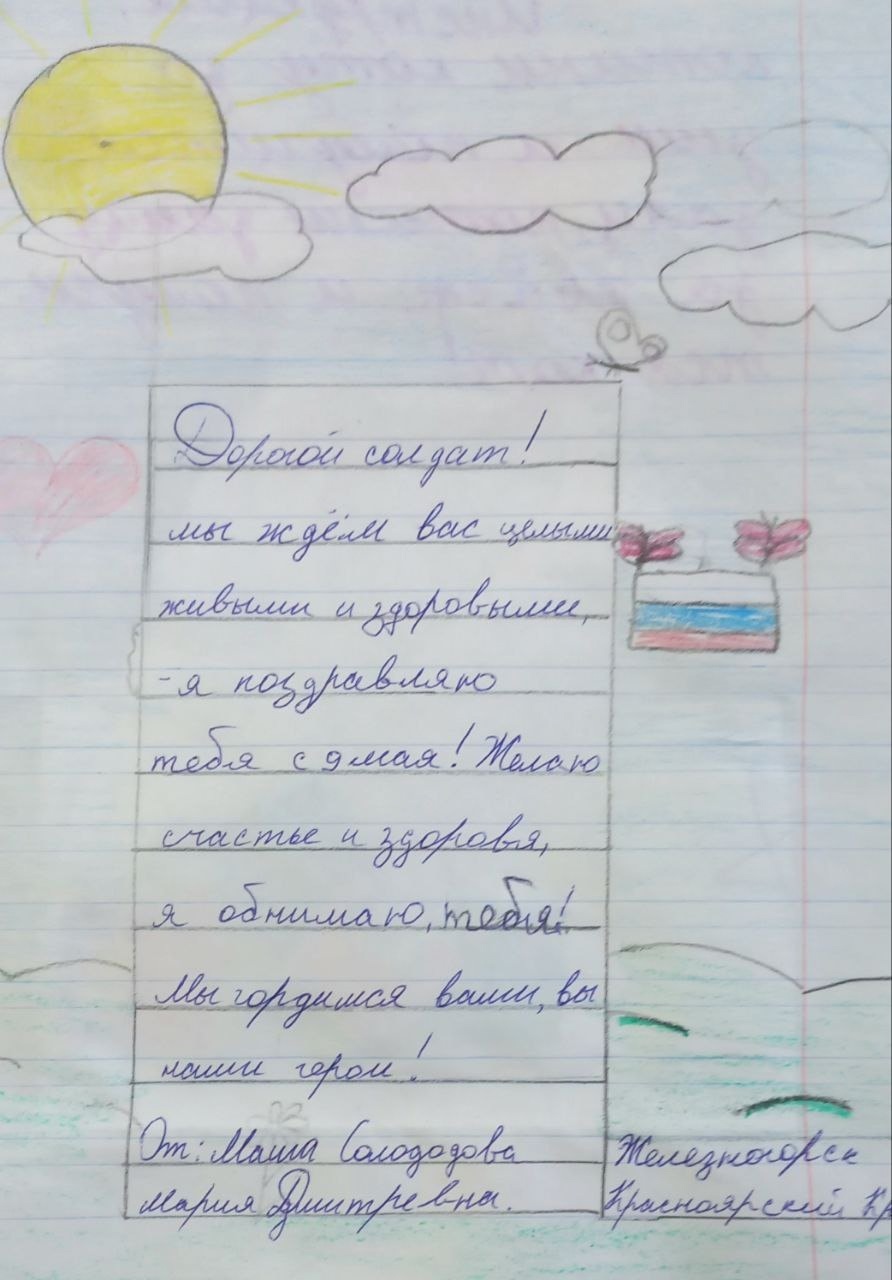 Дорогой солдат!
мы ждём вас целыми
живыми и здоровыми,
-я поздравляю
тебя с 9 мая! Желаю
счастье и здоровья,
я обнимаю, тебя!
Мы гордимся вами, вы
наши герои!
От: Маша Солододова
Мария Дмитревна.
Железногорск
Красноярский Кр